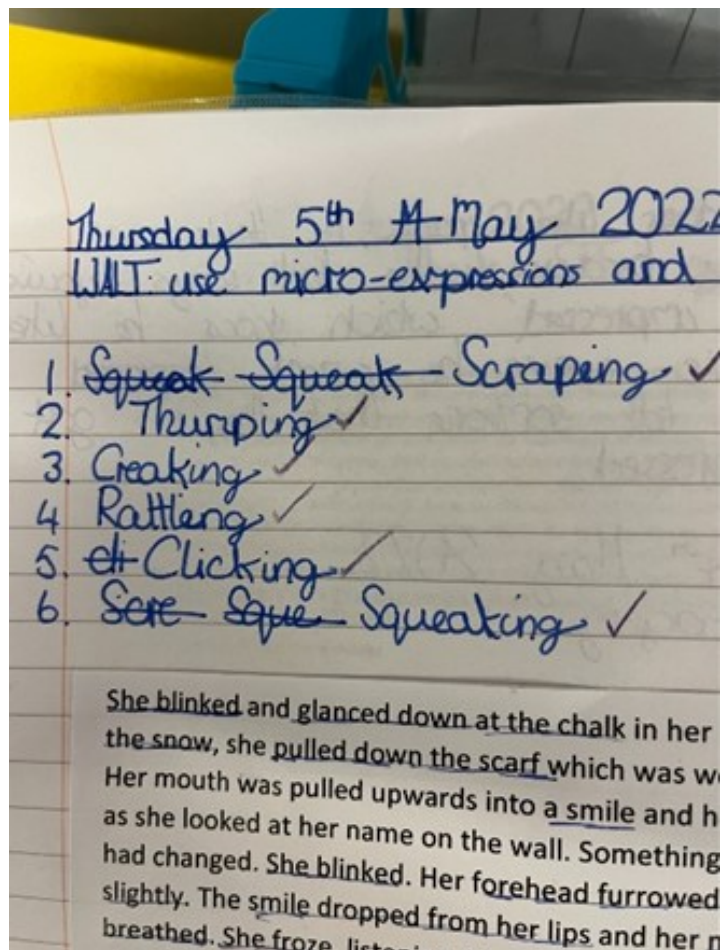 Thursday 5th M May 2022
WALT: use micro-expressions and
1. Squeak Squeak Scraping
2. Thumping
3. Creaking
4 Rattleng
5. cli Clicking
6. Scre Sque Squeaking
She blinked and glanced down at the chalk in her
the snow, she pulled down the scarf which was
Her mouth was pulled upwards into a smile and
as she looked at her name on the wall. Something
had changed. She blinked. Her forehead furrowed
slightly. The smile dropped from her lips and her
breathed. She froze,